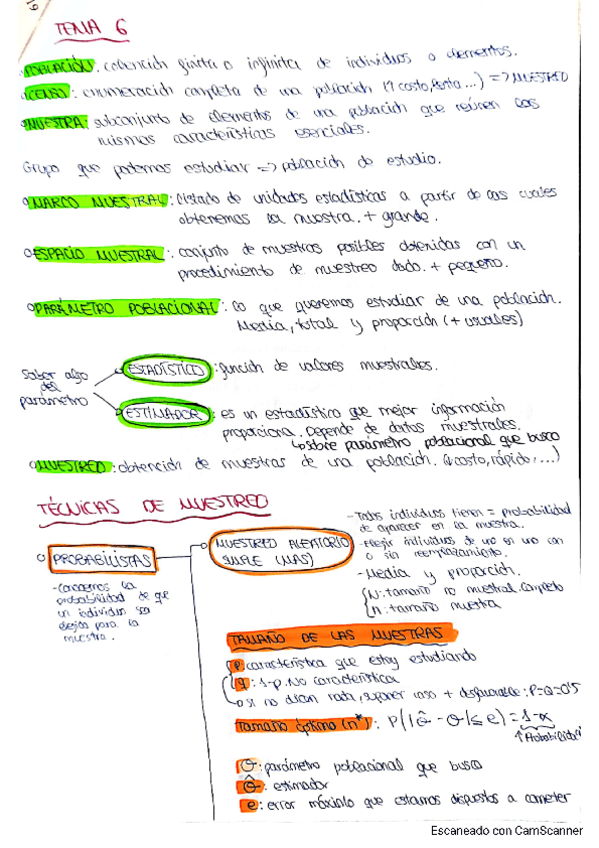 19
TEMA 6
POBLACIÓN: colección finita o infinita de individuos o elementos.
CENSO: enumeración completa de una población (↑ costo, lenta...) => MUESTREO
MUESTRA: subconjunto de elementos de una población que reúnen las
mismas características esenciales.
Grupo que podemos estudiar => población de estudio.
MARCO MUESTRAL: listado de unidades estadísticas a partir de las cuales
obtenemos la muestra. + grande.
ESPACIO MUESTRAL: conjunto de muestras posibles obtenidas con un
procedimiento de muestreo dado. + pequeño.
PARÁMETRO POBLACIONAL: lo que queremos estudiar de una población.
Media, total y proporción (+ usuales)
Saber algo
del
parámetro
ESTADÍSTICO: función de valores muestrales.
ESTIMADOR: es un estadístico que mejor información
proporciona. Depende de datos muestrales.
↳ sobre parámetro poblacional que busco
MUESTREO: obtención de muestras de una población. (↓ costo, rápido, ...)
TÉCNICAS DE MUESTREO
PROBABILISTAS
- Conocemos la
probabilidad de que
un individuo sea
elegido para la
muestra.
MUESTREO ALEATORIO
SIMPLE (MAS)
- Todos individuos tienen = probabilidad
de aparecer en la muestra.
- Elegir individuos de uno en uno con
o sin reemplazamiento.
- Media y proporción.
N: tamaño muestral completo
n: tamaño muestra
TAMAÑO DE LAS MUESTRAS
p: característica que estoy estudiando
q: 1-p. No característica
↳ si no dicen nada, suponer caso + desfavorable: P=Q=0'5
Tamaño óptimo (n*): P(|θ̂ - θ| ≤ e) = 1-α
↑ Probabilidad
θ: parámetro poblacional que busco
θ̂: estimador
e: error máximo que estamos dispuestos a cometer
Escaneado con CamScanner